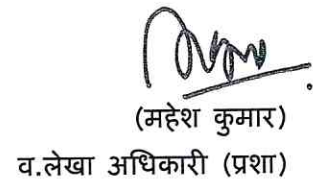 (महेश कुमार)
व.लेखा अधिकारी (प्रशा)